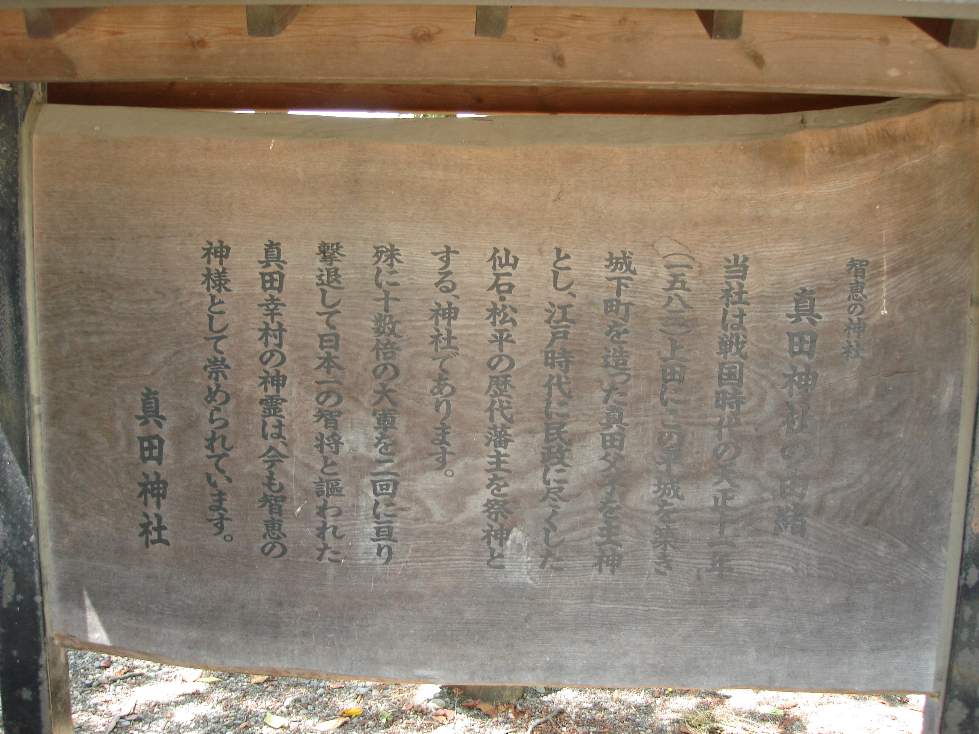 智恵の神社
真田神社の由緒
当社は戦国時代の天正十一年
（一五八三）上田にこの平城を築き
城下町を造った真田父子を主神
とし、江戸時代に民政に尽くした
仙石・松平の歴代藩主を祭神と
する、神社であります。
殊に十数倍の大軍を二回に亘り
撃退して日本一の智将と謳われた
真田幸村の神霊は、今も智恵の
神様として崇められています。
真田神社